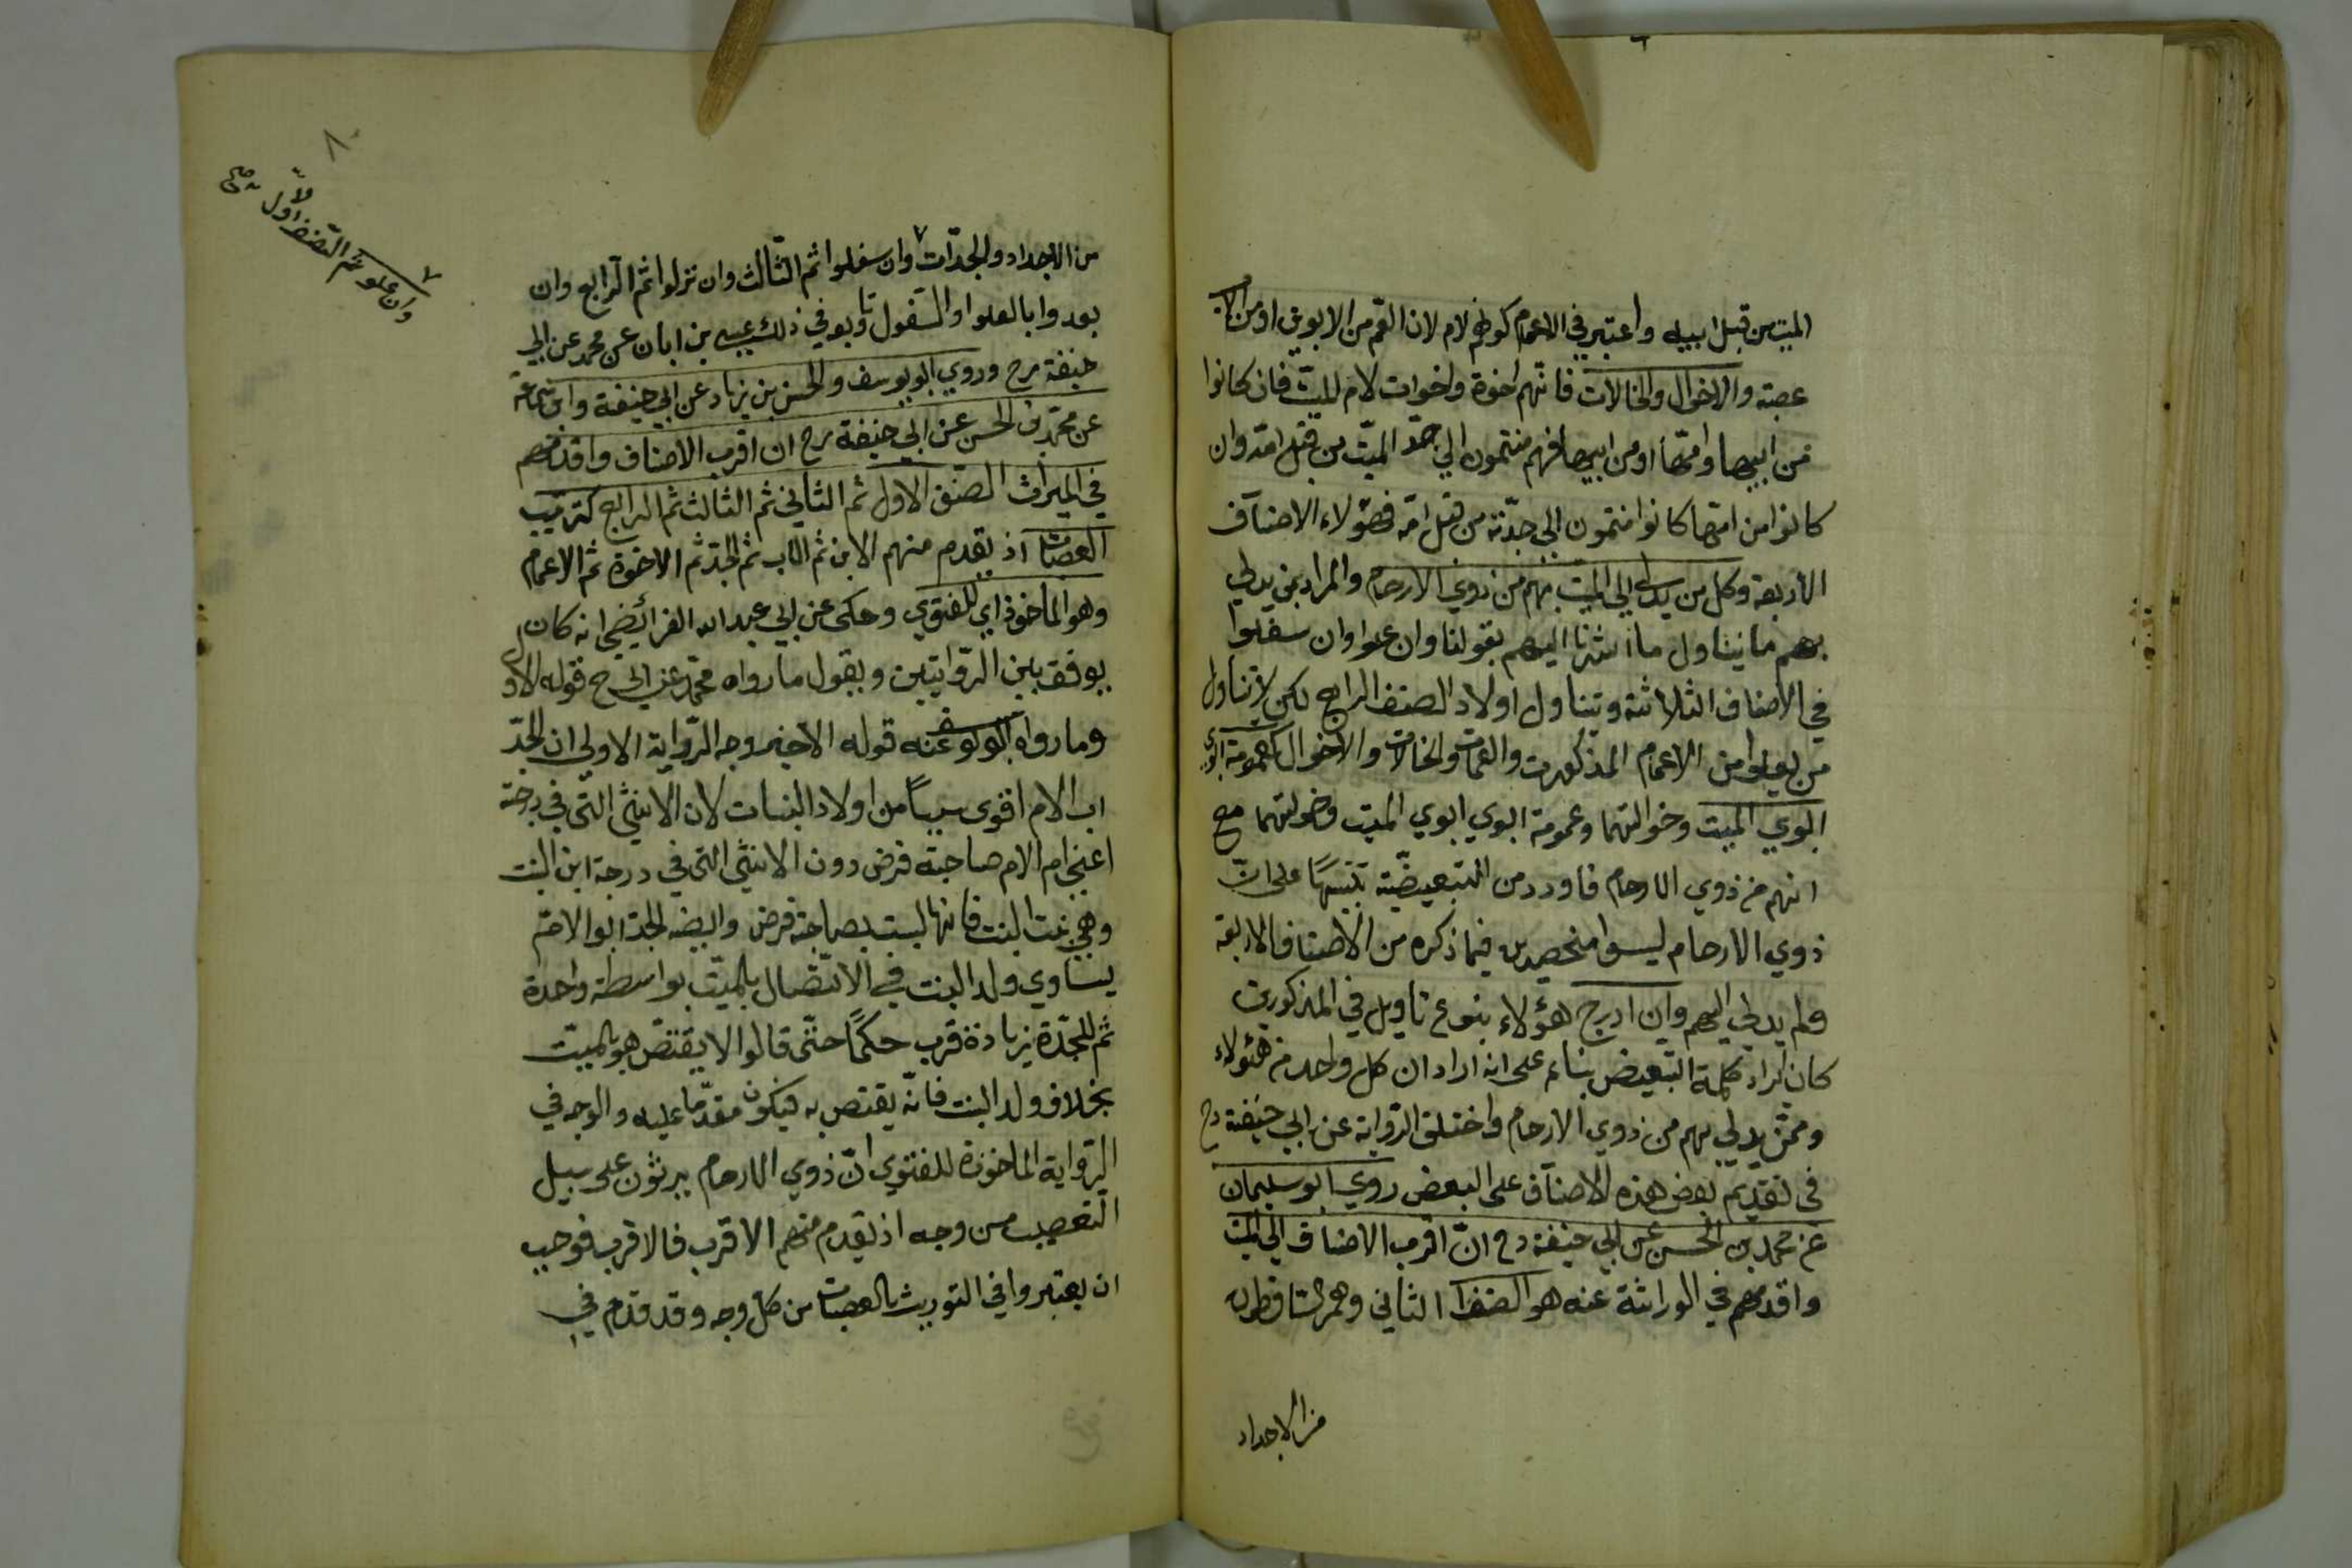 الميت من قبل ابيه واعتبر في الاعمام كونهم لام لان العم من الابوين او من الاب
عصبة والاخوال والخالات فانهم اخوة واخوات لام للميت فان كانوا
من ابيها وامها او من ابيها فهم منتمون الي جد الميت من قبل امه وان
كانوا من امها كانوا منتمون الي جدته من قبل امه فهؤلاء الاصناف
الاربعة وكل من يدلي الي الميت بهم من ذوي الارحام والمراد بمن يدلي
بهم ما يتناول ما اشرنا اليهم بقولنا وان علوا وان سفلوا
في الاصناف الثلاثة ويتناول اولاد الصنف الرابع لكن لا يتناول
من يعلوا من الاعمام المذكورين والعمات والخالات والاخوال كعمومة ابوي
ابوي الميت وخوالتهما وعمومة ابوي ابوي الميت وخولتهما مع
انهم من ذوي الارحام فاورد من التبعيضية تنبيها على ان
ذوي الارحام ليسوا منحصرين فيما ذكره من الاصناف الاربعة
ولم يدلي اليهم وان ادرج هؤلاء بنوع تاويل في المذكورين
كان ايراد كلمة التبعيض بناء على انه اراد ان كل واحد من هئولاء
وممن يدلي بهم من ذوي الارحام واختلف الرواية عن ابي حنيفة رح
في تقديم بعض هذه الاصناف على البعض روي ابو سليمان
عن محمد بن الحسن عن ابي حنيفة رح ان اقرب الاصناف الي الميت
واقدمهم في الوراثة عنه هو الصنف الثاني وهم الساقطون
من الاجداد
٨
وان علو ثم الصنف الاول صح
من الاجداد والجدات وان سفلوا ثم الثالث وان نزلوا ثم الرابع وان
بعدوا بالعلو او السفول تابعو في ذلك عيسى بن ابان عن محمد عن ابي
حنيفة رح وروي ابو يوسف والحسن بن زياد عن ابي حنيفة وابن سماعة
عن محمد بن الحسن عن ابي حنيفة رح ان اقرب الاصناف واقدمهم
في الميراث الصنف الاول ثم الثاني ثم الثالث ثم الرابع كترتيب
العصبات اذ يقدم منهم الابن ثم الاب ثم الجد ثم الاخوة ثم الاعمام
وهو الماخوذ اي للفتوي وحكى عن ابي عبد الله الفرائضي انه كان
يوفق بين الروايتين ويقول ما رواه محمد عن ابي ح قوله الاول
وما رواه ابو يوسف عنه قوله الاخير وجه الرواية الاولي ان الجد
اب الام اقوى سببا من اولاد البنات لان الانثي التي في درجته
اعني ام الام صاحبة فرض دون الانثي التي في درجة ابن البنت
وهي بنت البنت فانها ليست بصاحبة فرض وايضا الجد ابو الام
يساوي ولد البنت في الاتصال بالميت بواسطة واحدة
ثم للجد زيادة قرب حكما حتى قالوا لا يقتص هو بالميت
بخلاف ولد البنت فانه يقتص به فيكون مقدما عليه والوجه في
الرواية الماخوذة للفتوي ان ذوي الارحام يرثون على سبيل
التعصيب من وجه اذ يقدم منهم الاقرب فالاقرب فوجب
ان يعتبروا في التوريث بالعصبات من كل وجه وقد قدم في